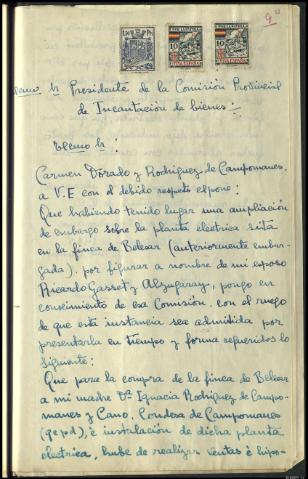 9
10
10
Ilmo Sr Presidente de la Comisión Provincial
de Incautación de bienes:
Ilmo Sr:
Carmen Dorado y Rodriguez de Campomanes,
a V.E con el debido respeto expone:
Que habiendo tenido lugar una ampliación
de embargo sobre la planta electrica sita
en la finca de Belesar (anteriormente embar-
gada), por figurar a nombre de mi esposo
Ricardo Gasset y Alzugaray, pongo en
conocimiento de esa Comisión, con el ruego
de que esta instancia sea admitida por
presentarla en tiempo y forma referidos lo
siguiente:
Que para la compra de la finca de Belesar
a mi madre Dª Ignacia Rodriguez de Campo-
manes y Cano, Condesa de Campomanes
(q.e.p.d), é instalación de dicha planta
electrica, hube de realizar ventas é hipo-